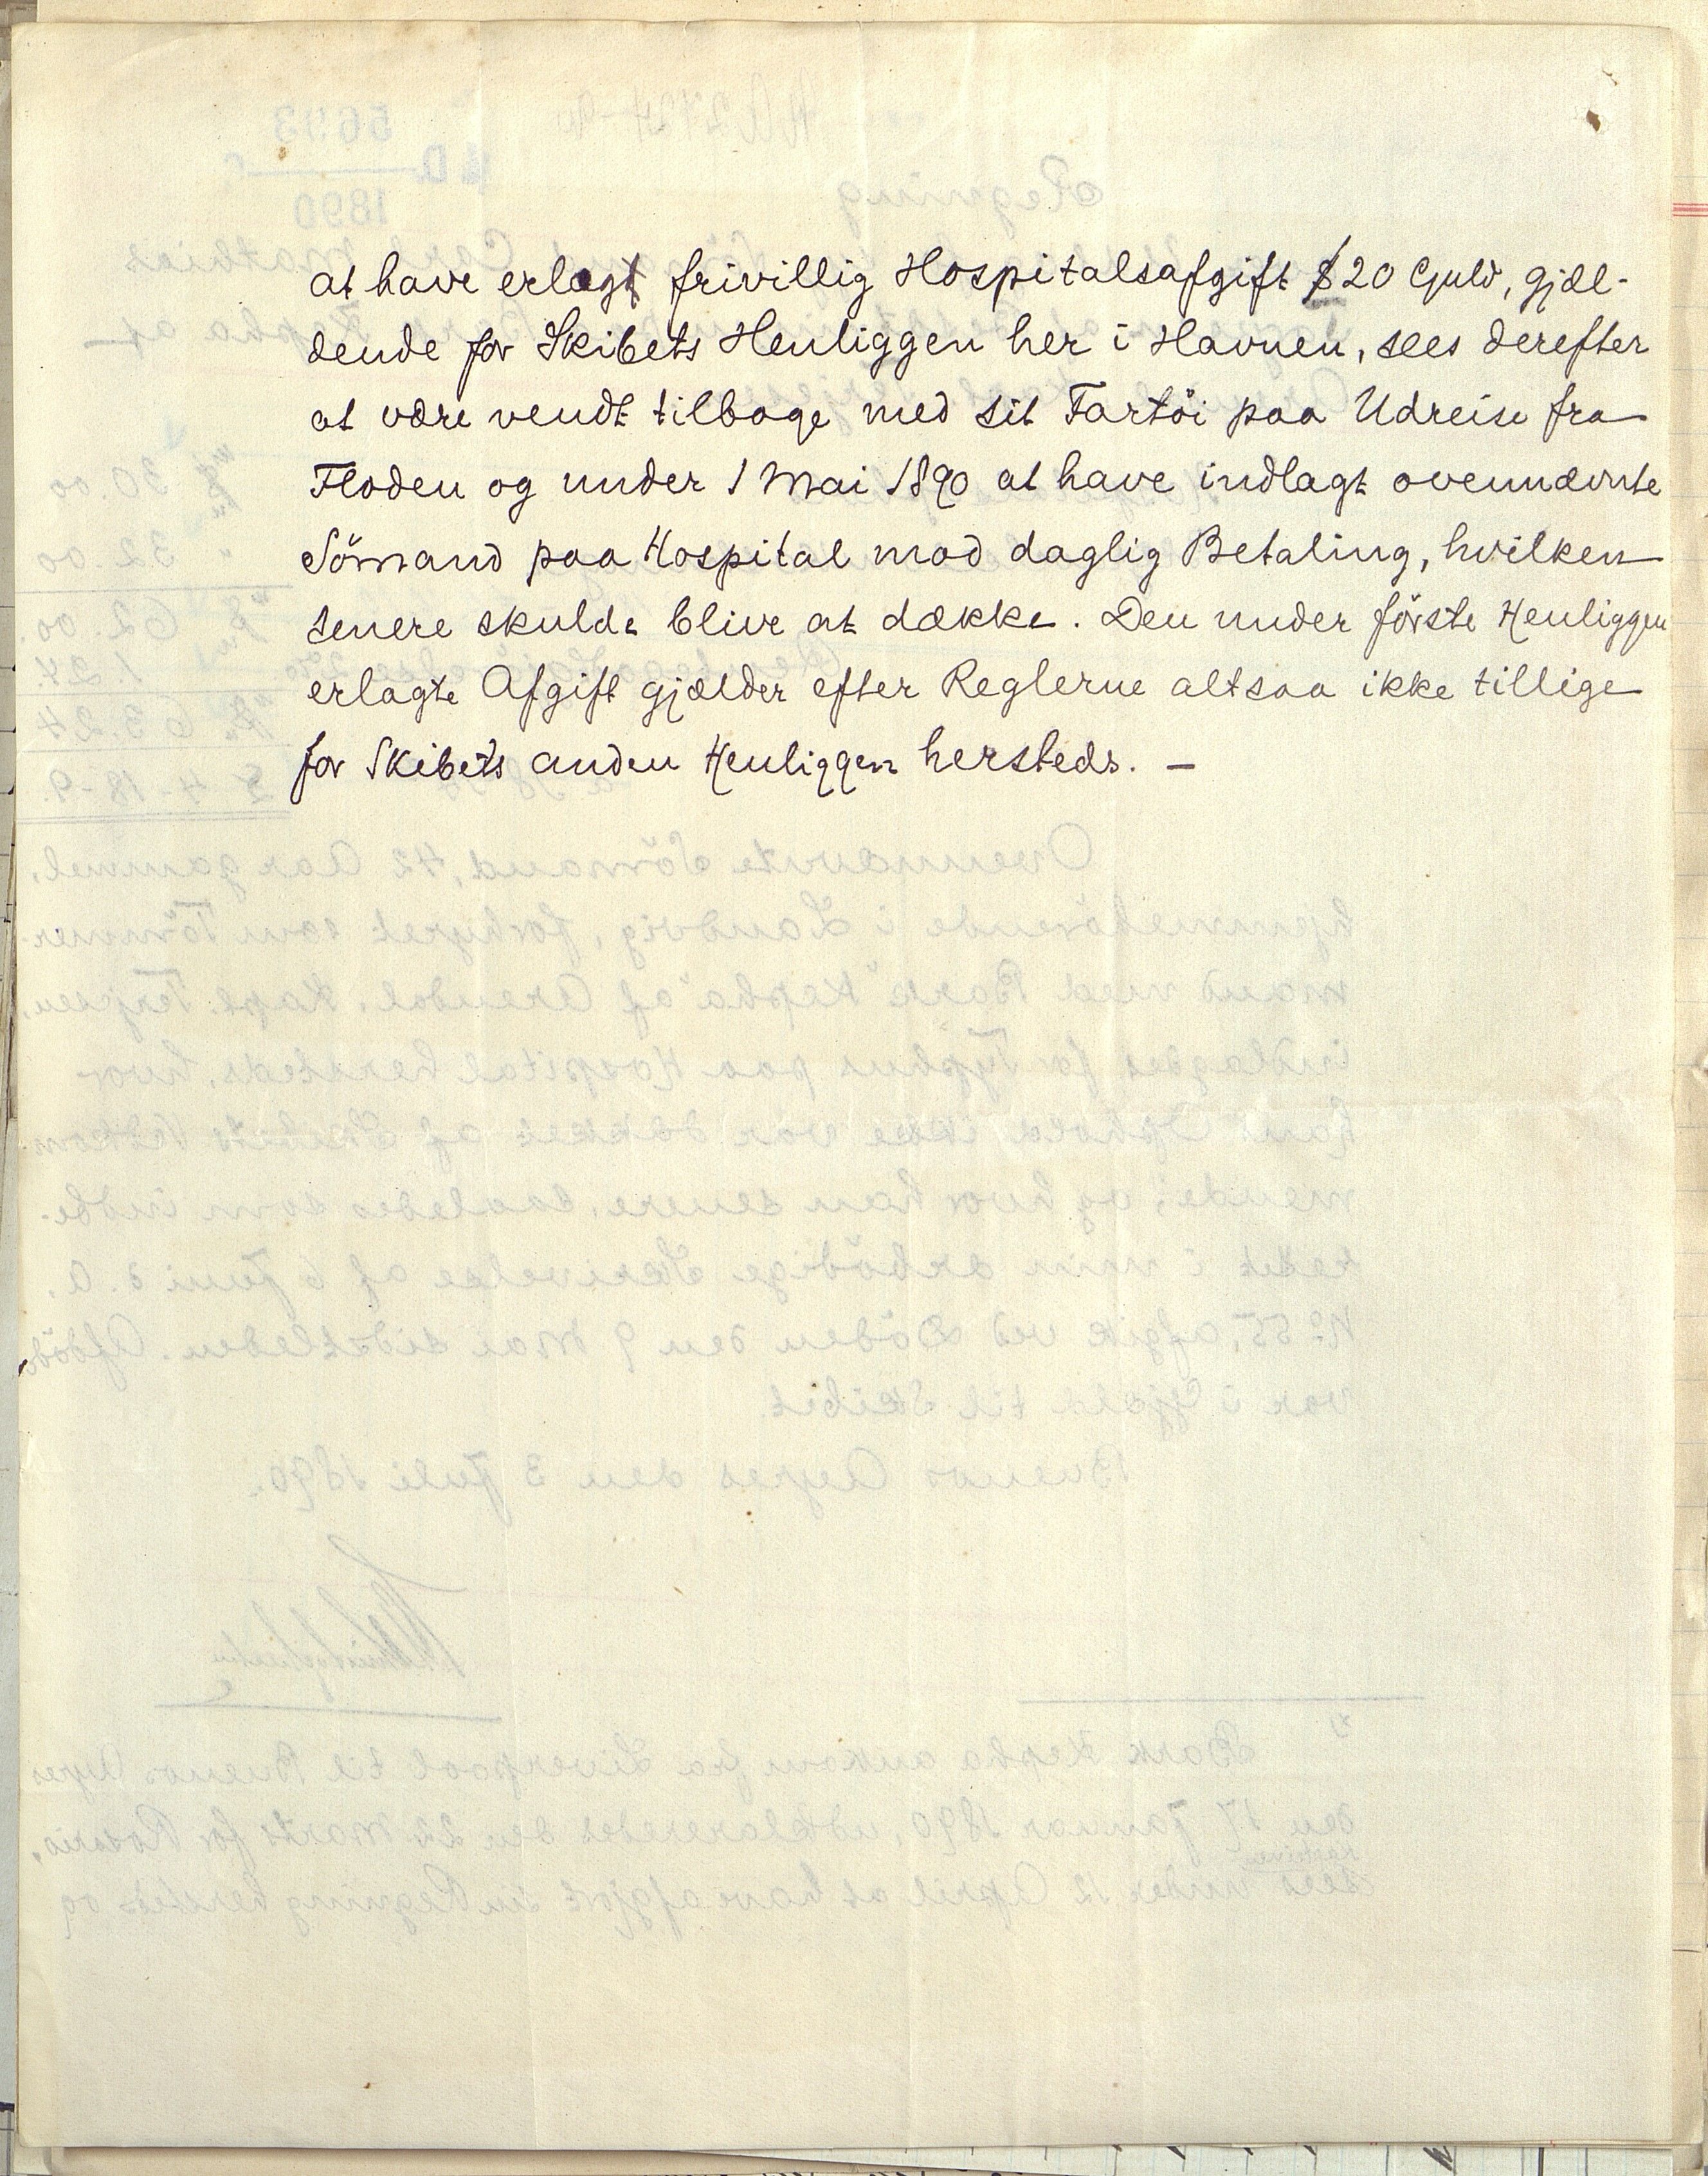 at have erlagt frivillig Hospitalsafgift $20 Guld, gjæl-
dende for Skibets Henliggen her i Havnen, sees derefter
at være vendt tilbage med sit Fartöi paa Udreise fra
Floden og under 1 Mai 1890 at have indlagt ovennævnte
Sömand paa Hospital mod daglig Betaling, hvilken
senere skulde blive at dække. Den under förste Henliggen
erlagte Afgift gjælder efter Reglerne altsaa ikke tillige
for Skibets anden Henliggen hersteds. —